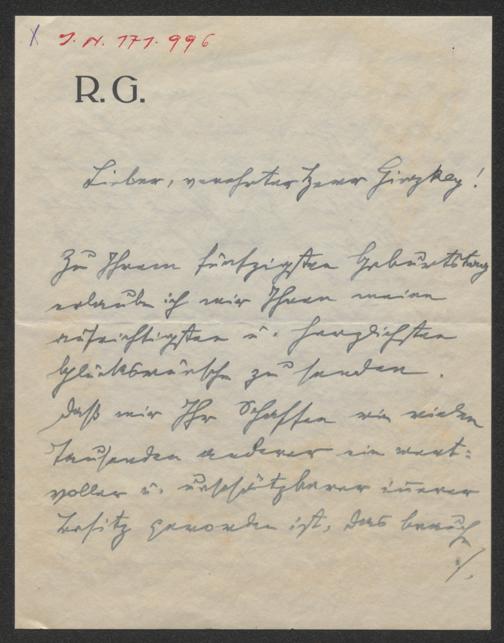 J. N. 171.996
R. G.
Lieber, verehrter Herr Ginzkey!
Zu Ihrem fünfzigsten Geburtstag
erlaube ich mir Ihnen meine
aufrichtigsten u. herzlichsten
Glückswünsche zu senden.
Daß mir Ihr Schaffen wie vielen
Tausenden anderer ein wert=
voller u. unschätzbarer innerer
Besitz geworden ist, das brauch
./.